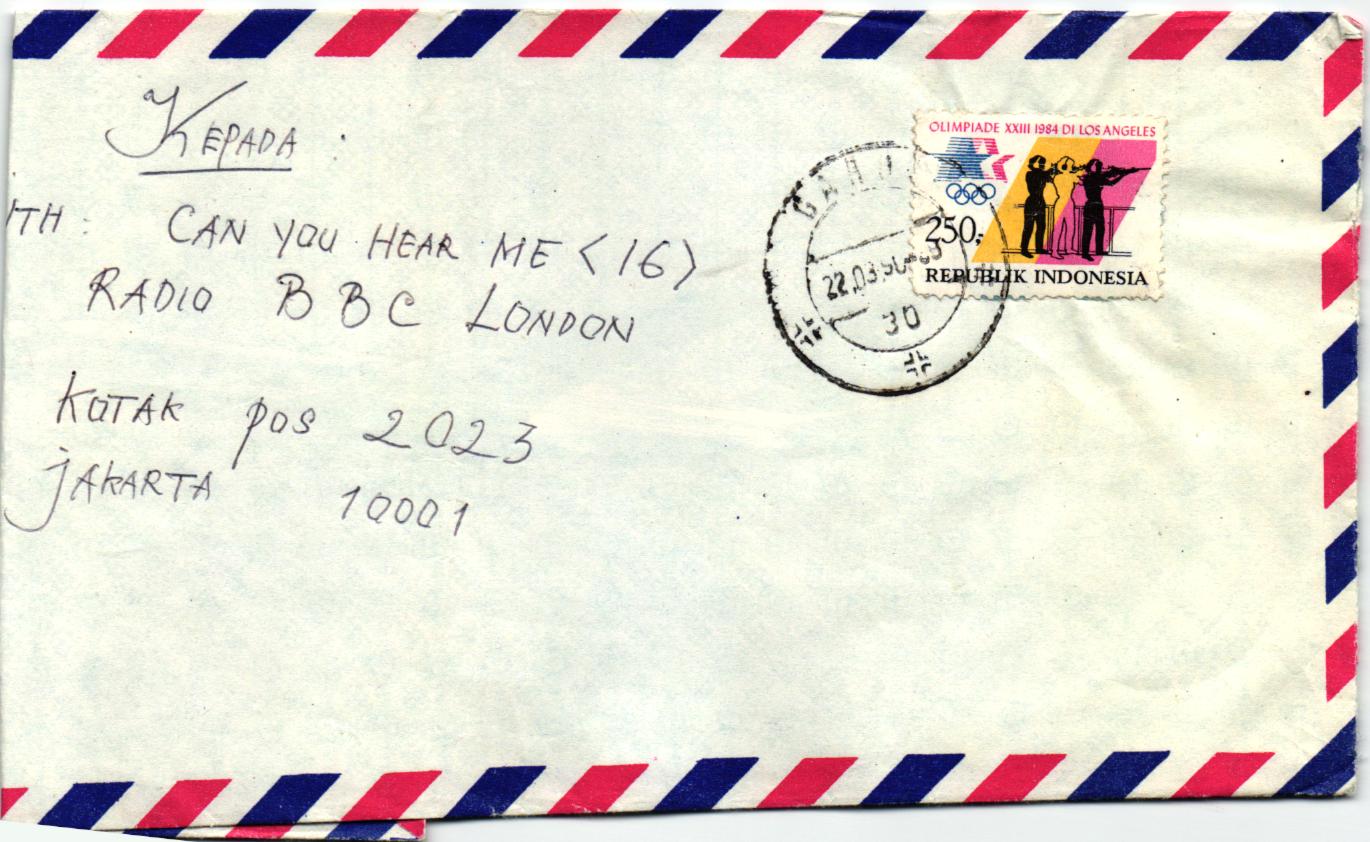 KEPADA :
YTH : CAN YOU HEAR ME <16>
RADIO BBC LONDON
KOTAK pos 2023
JAKARTA 10001
OLIMPIADE XXIII 1984 DI LOS ANGELES
250,-
REPUBLIK INDONESIA
22.03.90
30